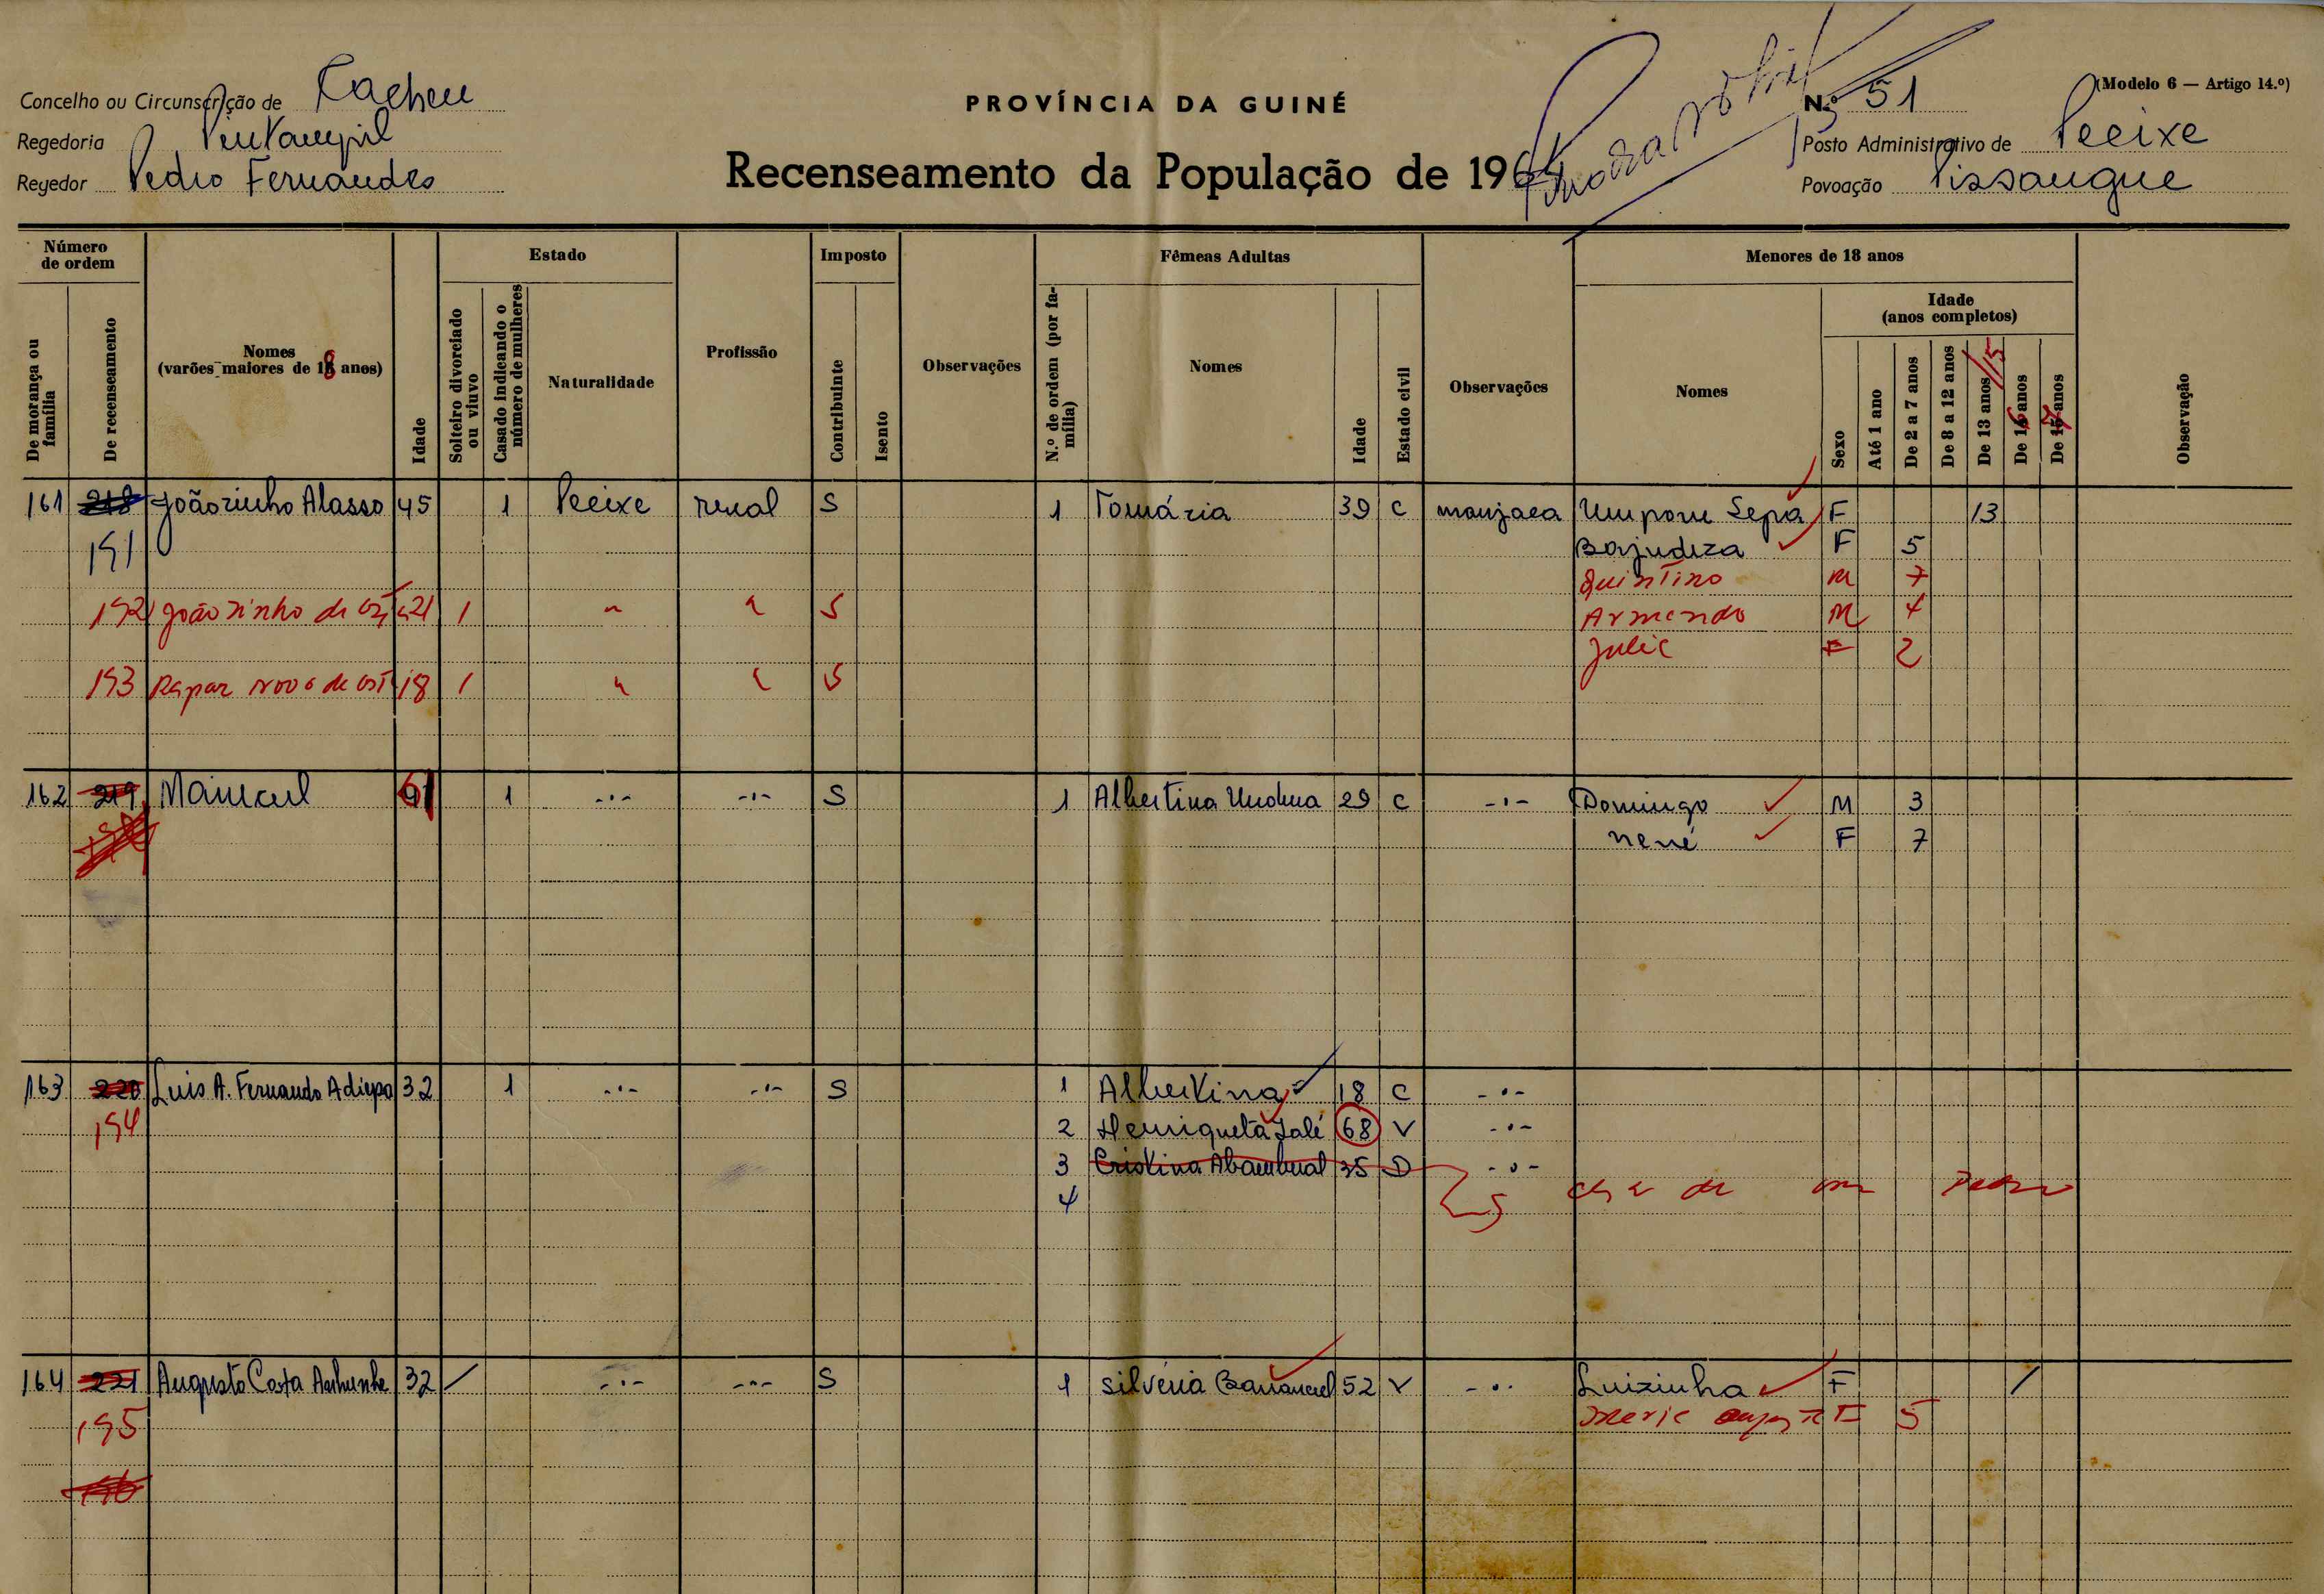 Concelho ou Circunscrição de Cacheu
Regedoria
Regedor Pedro Fernandes
PROVÍNCIA DA GUINÉ
Recenseamento da População de 196
(Modelo 6 — Artigo 14.º)
N.º 51
Posto Administrativo de Peeixe
Povoação Pissangue
Número de ordem
De morança ou família
De recenseamento
Nomes
(varões maiores de 18 anos)
Idade
Estado
Solteiro divorciado ou viuvo
Casado indicando o número de mulheres
Naturalidade
Profissão
Imposto
Contribuinte
Isento
Observações
Fêmeas Adultas
N.º de ordem (por família)
Nomes
Idade
Estado civil
Observações
Menores de 18 anos
Nomes
Idade
(anos completos)
Sexo
Até 1 ano
De 2 a 7 anos
De 8 a 12 anos
De 13 anos /15
De 16 anos
De 17 anos
Observação
161 218 Joãozinho Alasso 45 1 Peeixe rural S 1 Tomázia 39 C manjaca Umpom Sepa F 13
191 Bajudeza F 5
Quintino M 7
192 Joãozinho de 21 1 " " S Armando M 4
Julic F 2
193 Rapaz Novo de 18 1 " " S
162 219 61 1 -.- -.- S 1 Albertina 29 C -.- Domingo M 3
Nené F 7
163 220 Luis A. Fernando Adiepa 32 1 -.- -.- S 1 Albertina 18 C -.-
194 2 Henriqueta Jalé 68 V -.-
3 Cristina 35 D -.-
4
164 221 Augusto Costa 32 -.- -.- S 1 Silvéria 52 V -.- Luizinha F
195 F 5